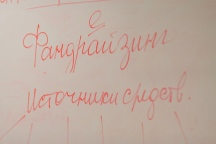 Фандрайзинг
Источники средств.